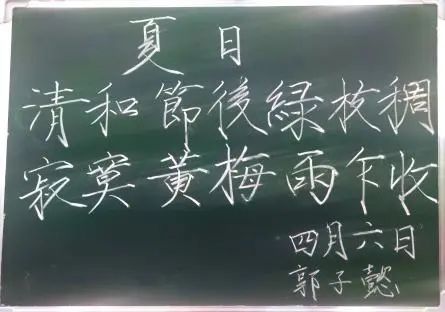 夏日
清和節後綠枝稠
寂寞黃梅雨乍收
四月六日
郭子懿